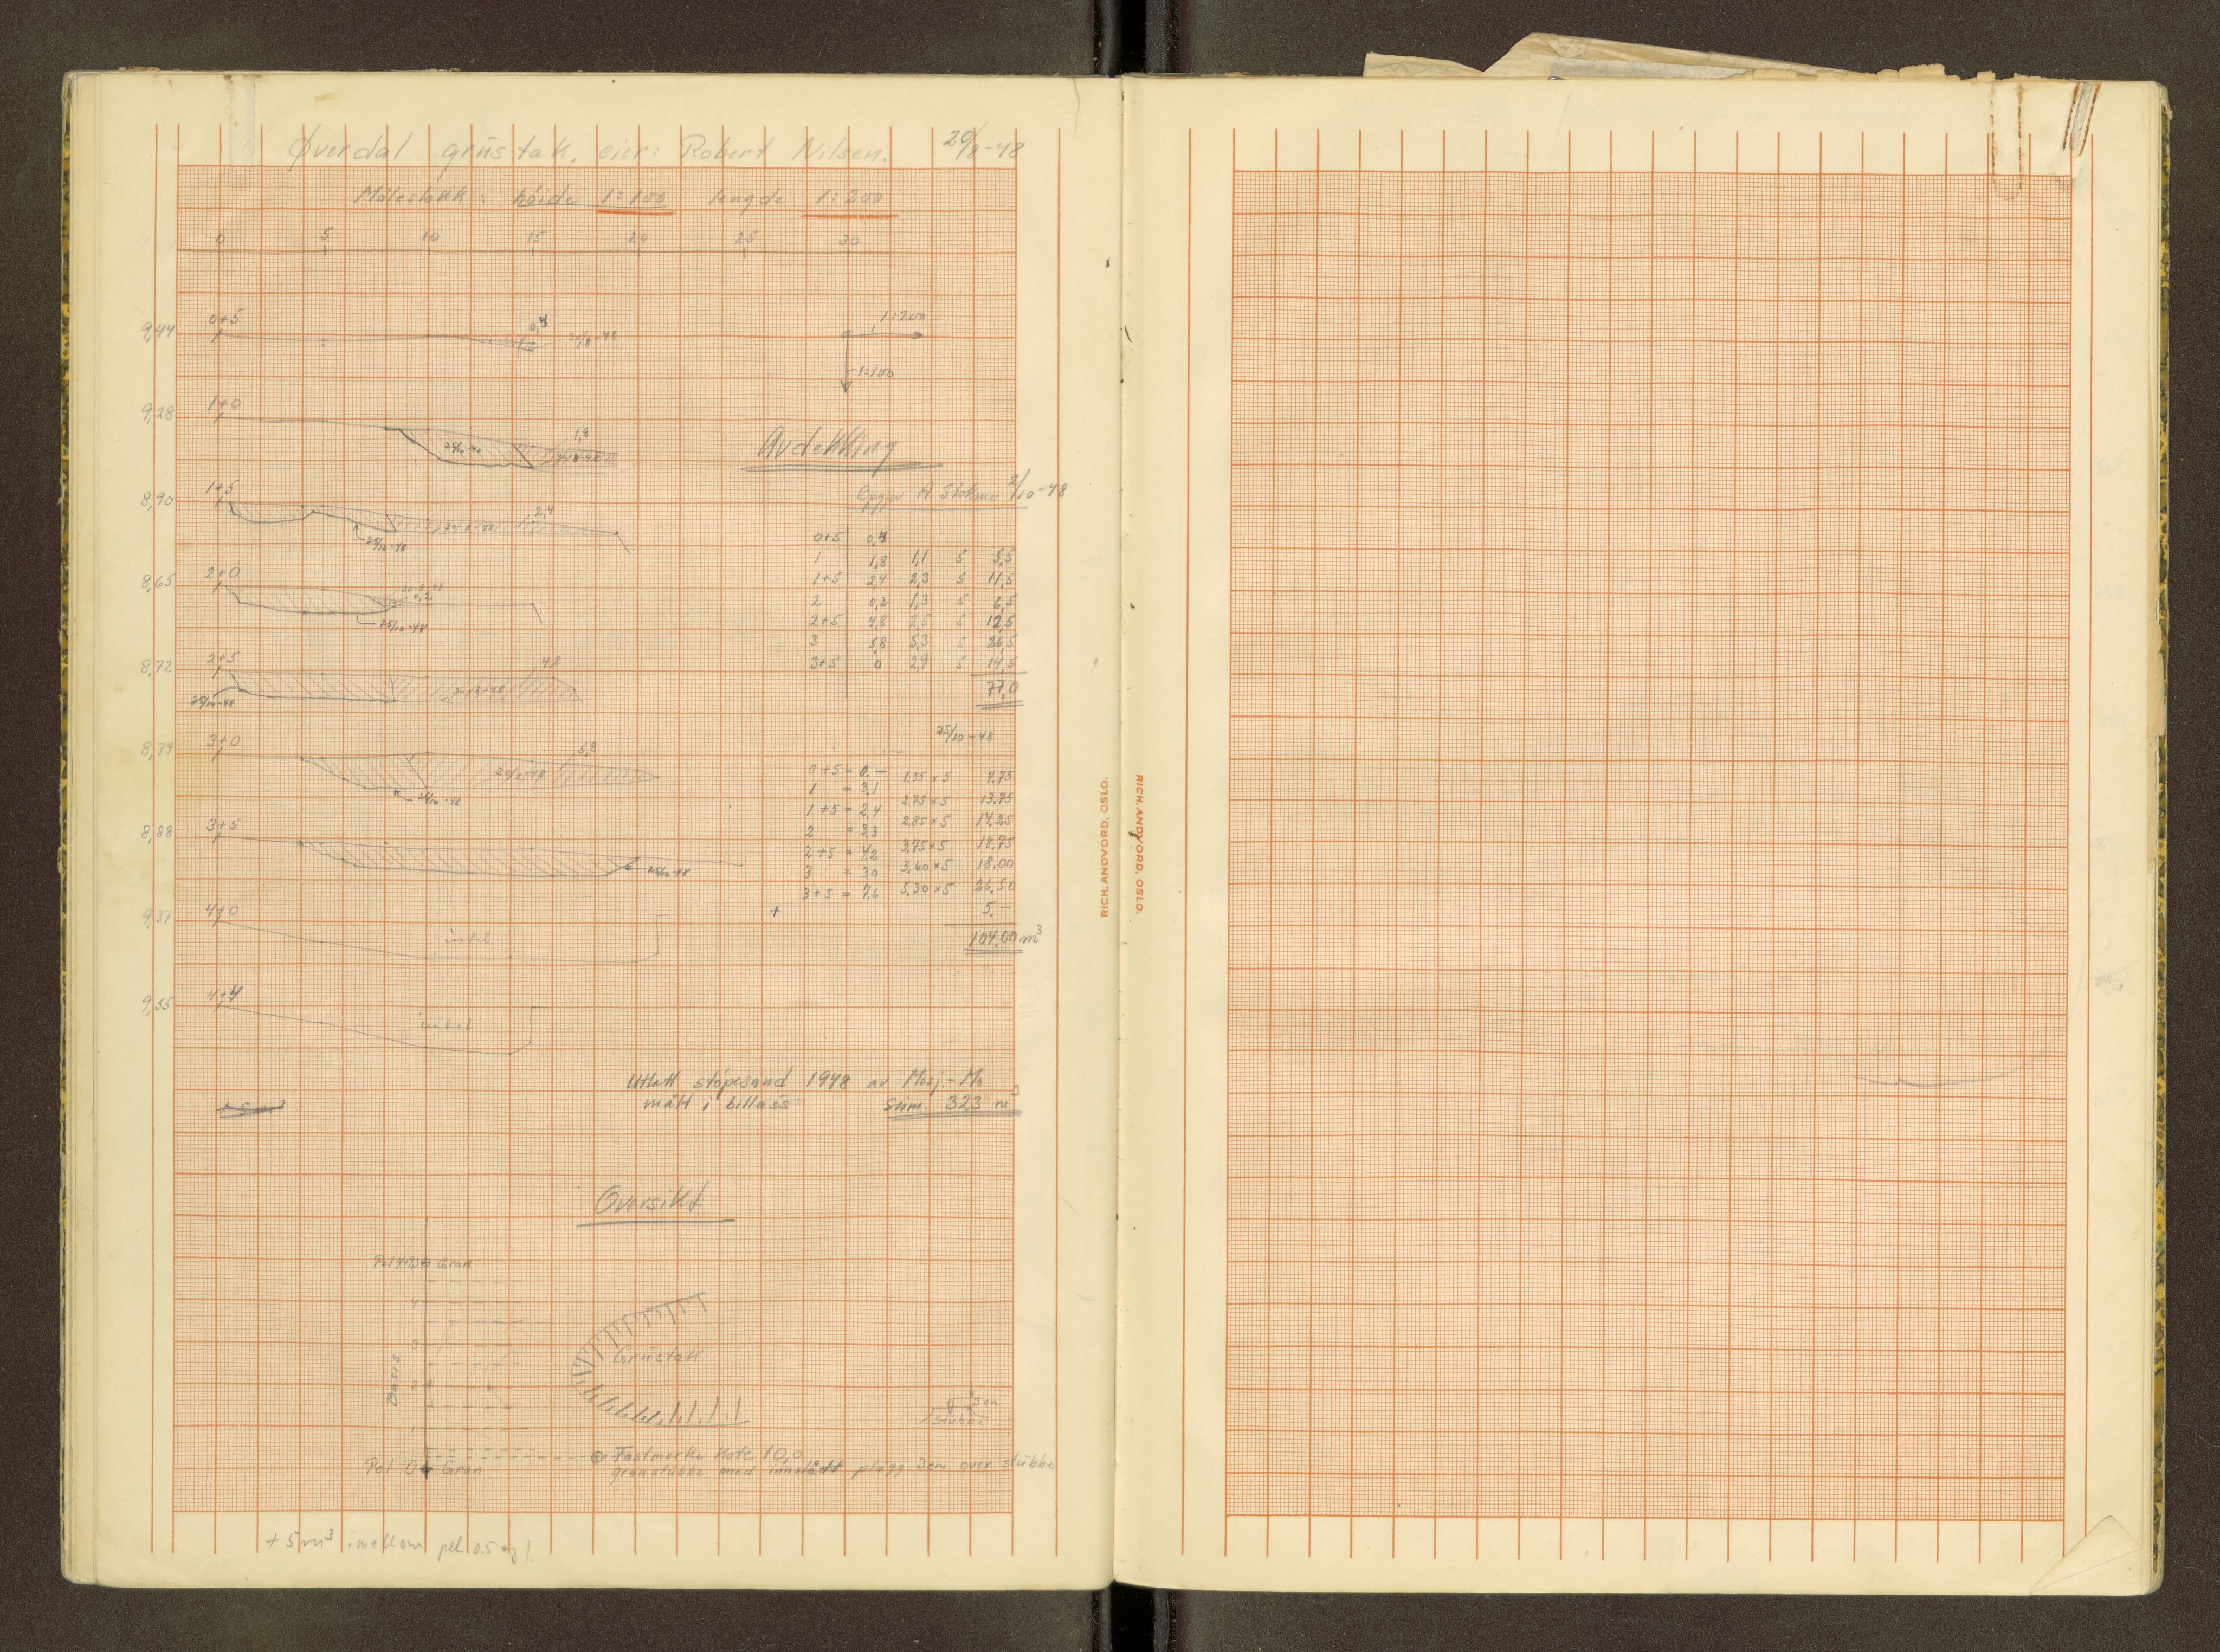 Øverdal grustak, eier: Robert Nilsen. 20/8-48
Målestokk: høide 1:100 lengde 1:200
0 5 10 15 20 25 30
9,44 0+5 0,4 20/8-48
1:200
1:100
9,28 1+0 1,8
25/10-48
Avdekking
2/10-48
8,90 1+5 2,4
20-8-48
25/10-48
8,65 2+0 20-8-48
0,2
25/10-48
8,72 2+5 4,8
20-8-48
25/10-48
8,79 3+0 5,8
20/8-48
25/10-48
8,88 3+5
25/10-48
9,37 4+0
9,55 4+4
0+5 0,4
1 1,8 1,1 5 5,5
1+5 2,4 2,3 5 11,5
2 0,2 1,3 5 6,5
2+5 4,8 2,5 5 12,5
3 5,8 5,3 5 26,5
3+5 0 2,9 5 14,5
77,0
25/10-48
0+5 = 0.— 1.55 × 5 7.75
1 = 3,1 2,75 × 5 13.75
1+5 = 2,4 2,85 × 5 14.25
2 = 3,3 3,75 × 5 18.75
2+5 = 4,2 3,60 × 5 18.00
3 = 3,0 5,30 × 5 26,50
3+5 = 7,6
+ 5.—
104,00 m³
Uttatt støpesand 1948 av Mosj.-Mo
målt i billass Sum. 323 m³
Oversikt
Gran
4
3
2
1
Basis
Grustak
3 cm
stubbe
Fastmerke kote 10,0
Pel 0 Gran
granstubbe med innslått plugg 3cm over stubbe
+ 5 m³ imellom pel 0.5 og 1.
RICH. ANDVORD, OSLO.
RICH. ANDVORD, OSLO.